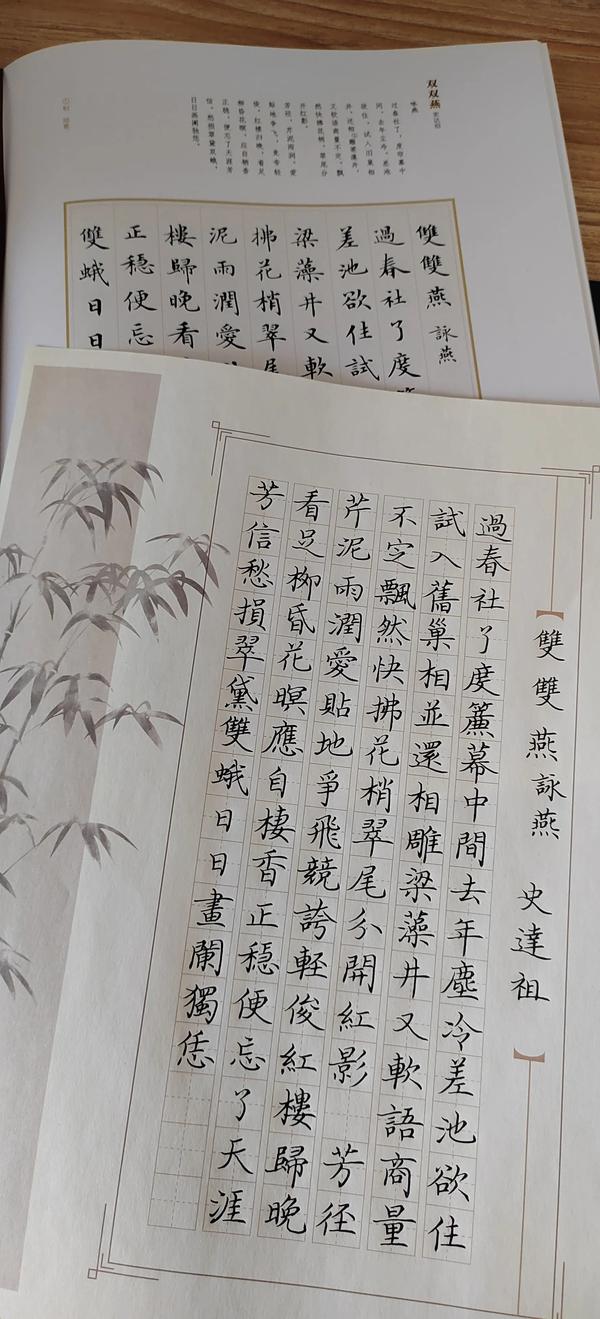 双双燕 史达祖
咏燕
过春社了，度帘幕中
间，去年尘冷。差池
欲住，试入旧巢相
并。还相雕梁藻井，
又软语商量不定。飘
然快拂花梢，翠尾分
开红影。
芳径，芹泥雨润，爱
贴地争飞，竞夸轻
俊。红楼归晚，看足
柳昏花暝。应自栖香
正稳，便忘了天涯芳
信。愁损翠黛双蛾，
日日画阑独凭。
雙雙燕 詠燕
過春社了度
差池欲住試
梁藻井又軟
拂花梢翠尾
泥雨潤愛
樓歸晚看
正穩便忘
雙蛾日日
雙雙燕詠燕 史達祖
過春社了度簾幕中間去年塵冷差池欲住
試入舊巢相並還相雕梁藻井又軟語商量
不定飄然快拂花梢翠尾分開紅影 芳径
芹泥雨潤愛貼地爭飛競誇軽俊紅樓歸晚
看足柳昏花暝應自棲香正穩便忘了天涯
芳信愁損翠黛雙蛾日日畫闌獨恁